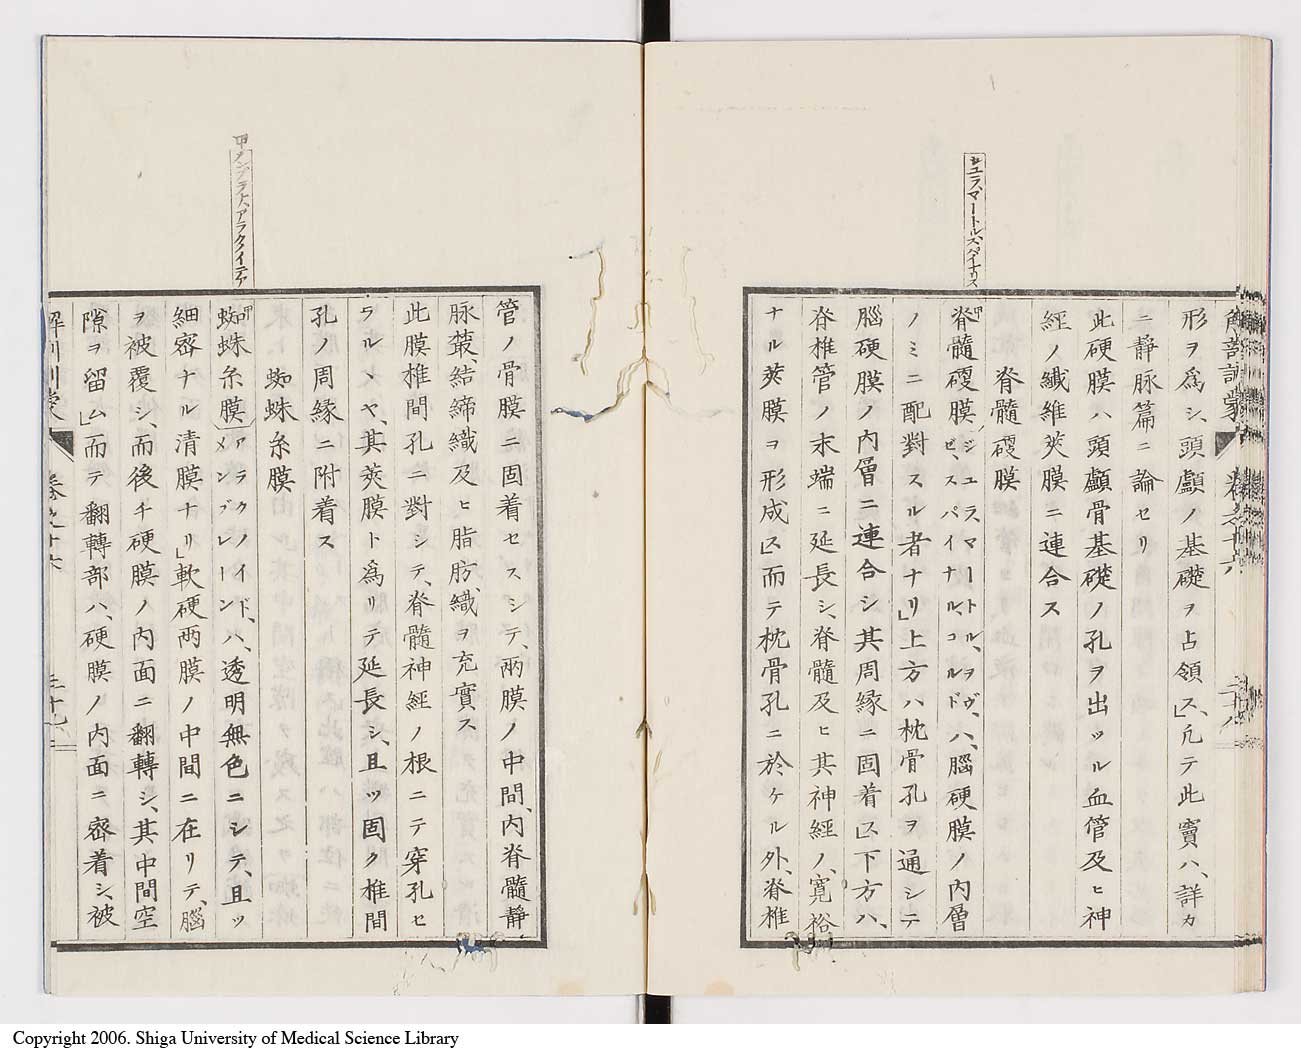 セユラ、マートル、スパイナリス
形ヲ爲シ、頭顱ノ基礎ヲ占領ス」凢テ此竇ハ、詳カ
ニ靜脉篇ニ論セリ
此硬膜ハ頭顱骨基礎ノ孔ヲ出ツル血管及ヒ神
經ノ纎維莢膜ニ連合ス
脊髓硬膜
甲脊髓硬膜ジユラマートル、ヲヴ、ゼ、スパイナル、コルド、ハ、腦硬膜ノ内層
ノミニ配對スル者ナリ」上方ハ枕骨孔ヲ通シテ
腦硬膜ノ内層ニ連合シ其周縁ニ固着ス」下方ハ、
脊椎管ノ末端ニ延長シ、脊髓及ヒ其神經ノ、寛裕
ナル莢膜ヲ形成ス」而テ枕骨孔ニ於ケル外、脊椎
解剖訓蒙 卷之十六 二十八
管ノ骨膜ニ固着セスシテ、兩膜ノ中間、内脊髓靜
脉叢、結締織及ヒ脂肪織ヲ充實ス
此膜椎間孔ニ對シテ、脊髓神經ノ根ニテ穿孔セ
ラル丶ヤ、其莢膜ト爲リテ延長シ、且ツ固ク椎間
孔ノ周縁ニ附着ス
蜘蛛糸膜
甲メンブラナ、アラクイデア
甲蜘蛛糸膜アラクノイド、メンブレーンハ、透明無色ニシテ、且ツ
細密ナル清膜ナリ」軟硬兩膜ノ中間ニ在リテ、腦
ヲ被覆シ、而後チ硬膜ノ内面ニ翻轉シ、其中間空
隙ヲ留ム」而テ翻轉部ハ、硬膜ノ内面ニ密着シ、被
解剖訓蒙 卷之十六 二十九